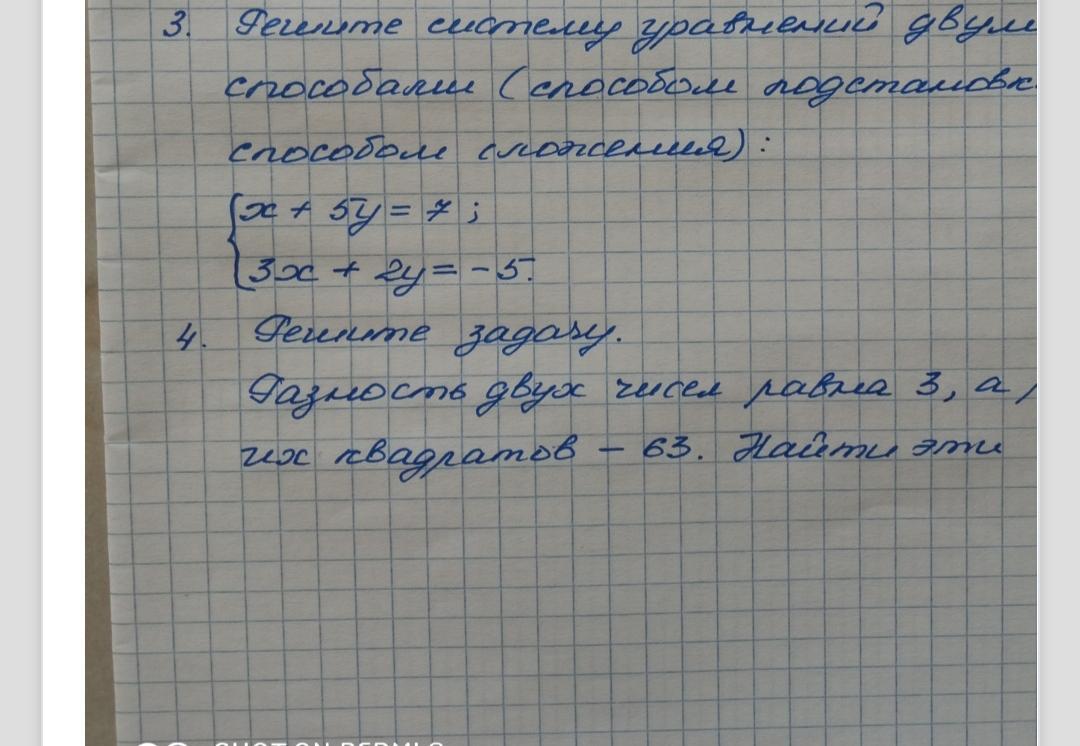 3. Решите систему уравнений двум
способами (способом подстановк
способом сложения):
x + 5y = 7 ;
3x + 2y = - 5.
4. Решите задачу.
Разность двух чисел равна 3, а
их квадратов - 63. Найти эти